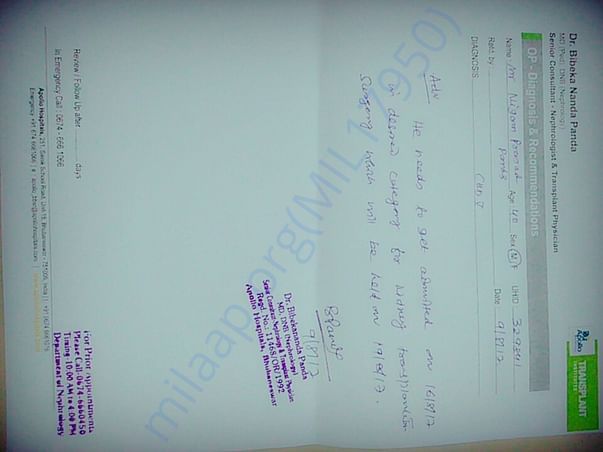 Dr. Bibeka Nanda Panda
MD (Med), DNB (Nephrology)
Senior Consultant - Nephrologist & Transplant Physician
Apollo
TRANSPLANT
INSTITUTES
OP - Diagnosis & Recommendations
Name Mr Age 40 Sex M F UHID
Panda
Date 9/8/17
DIAGNOSIS
CKD V
Adv
He needs to get admitted on 16/8/17
in desired category for kidney transplantation
Surgery which will be held on 19/8/17.
9/8/17
Dr. Bibekananda Panda
MD, DNB (Nephrology)
Senior Consultant Nephrology & Transplant Physician
Regd. No.: 11468/OR/1992
Apollo Hospitals, Bhubaneswar
Review / Follow Up after days
In Emergency Call : 0674 - 666 1066
For Prior Appointment
Please Call:0674-6660450
Timing 10.00 AM to 4.00 PM
Department of Nephrology
Apollo Hospitals, 251, Sainik School Road, Unit-15, Bhubaneswar- 751005,
milaap.org(MIL117950)